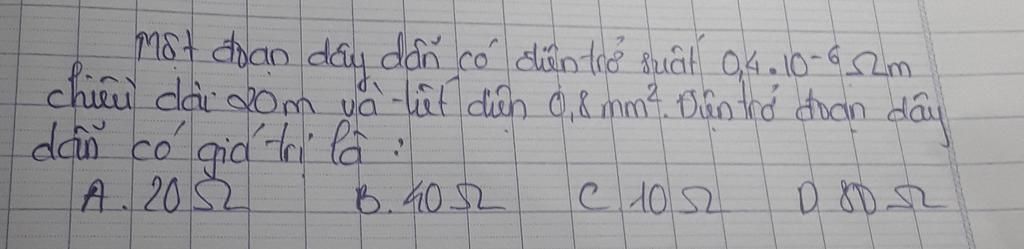 Một đoạn dây dẫn có điện trở suất 0,4.10-6 Ωm
chiều dài 20m và tiết diện 0,8 mm². Điện trở đoạn dây
dẫn có giá trị là :
A. 20 Ω B. 40 Ω C 10 Ω D 80 Ω